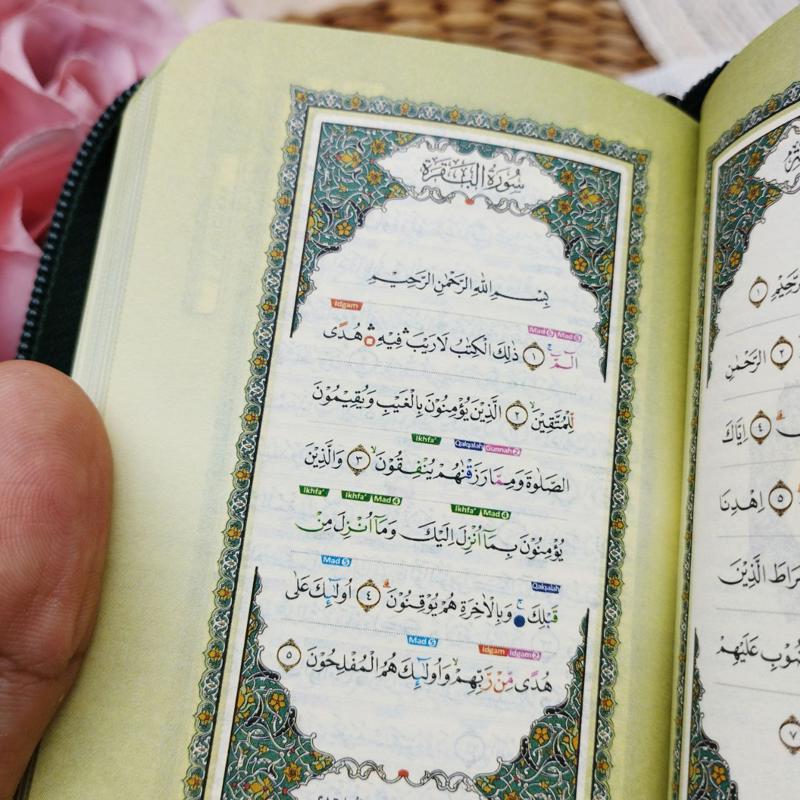 سُورَةُ الْبَقَرَةِ
بِسْمِ اللّٰهِ الرَّحْمٰنِ الرَّحِيْمِ
Idgam Mad 6 Mad 6
الۤمّۤ ۚ ١ ذٰلِكَ الْكِتٰبُ لَا رَيْبَ ۛ فِيْهِ ۛ هُدًى
لِّلْمُتَّقِيْنَ ۙ ٢ الَّذِيْنَ يُؤْمِنُوْنَ بِالْغَيْبِ وَيُقِيْمُوْنَ
Ikhfa' Qalqalah Gunnah 2
الصَّلٰوةَ وَمِمَّا رَزَقْنٰهُمْ يُنْفِقُوْنَ ۙ ٣ وَالَّذِيْنَ
Ikhfa' Ikhfa' Mad 4 Ikhfa' Mad 4
يُؤْمِنُوْنَ بِمَآ اُنْزِلَ اِلَيْكَ وَمَآ اُنْزِلَ مِنْ
Mad 5 Qalqalah
قَبْلِكَ ۚ وَبِالْاٰخِرَةِ هُمْ يُوْقِنُوْنَ ۗ ٤ اُولٰۤىِٕكَ عَلٰى
Mad 5 Idgam Idgam 2
هُدًى مِّنْ رَّبِّهِمْ ۙ وَاُولٰۤىِٕكَ هُمُ الْمُفْلِحُوْنَ ٥
١
٢ الرَّحْمٰنِ
٤ اِيَّاكَ
٥ اِهْدِنَا
الَّذِيْنَ
عَلَيْهِمْ
٧